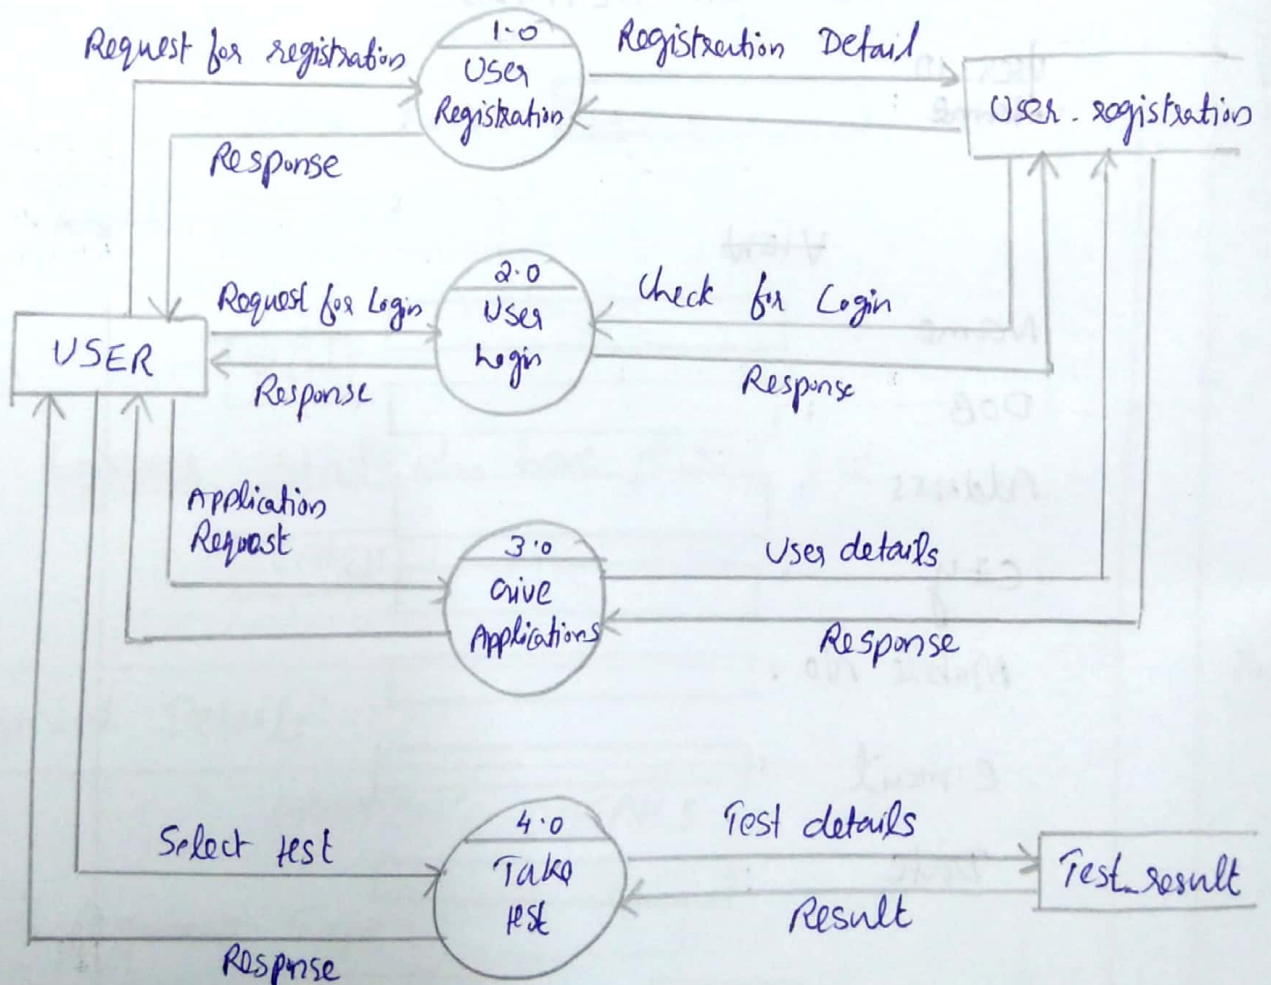 1.0
Request for registration
User
Registration
Registration Detail
User_registration
Response
2.0
Request for Login
User
Login
Check for Login
USER
Response
Response
Application
Request
3.0
Give
Applications
User details
Response
4.0
Select test
Take
test
Test details
Test_result
Result
Response